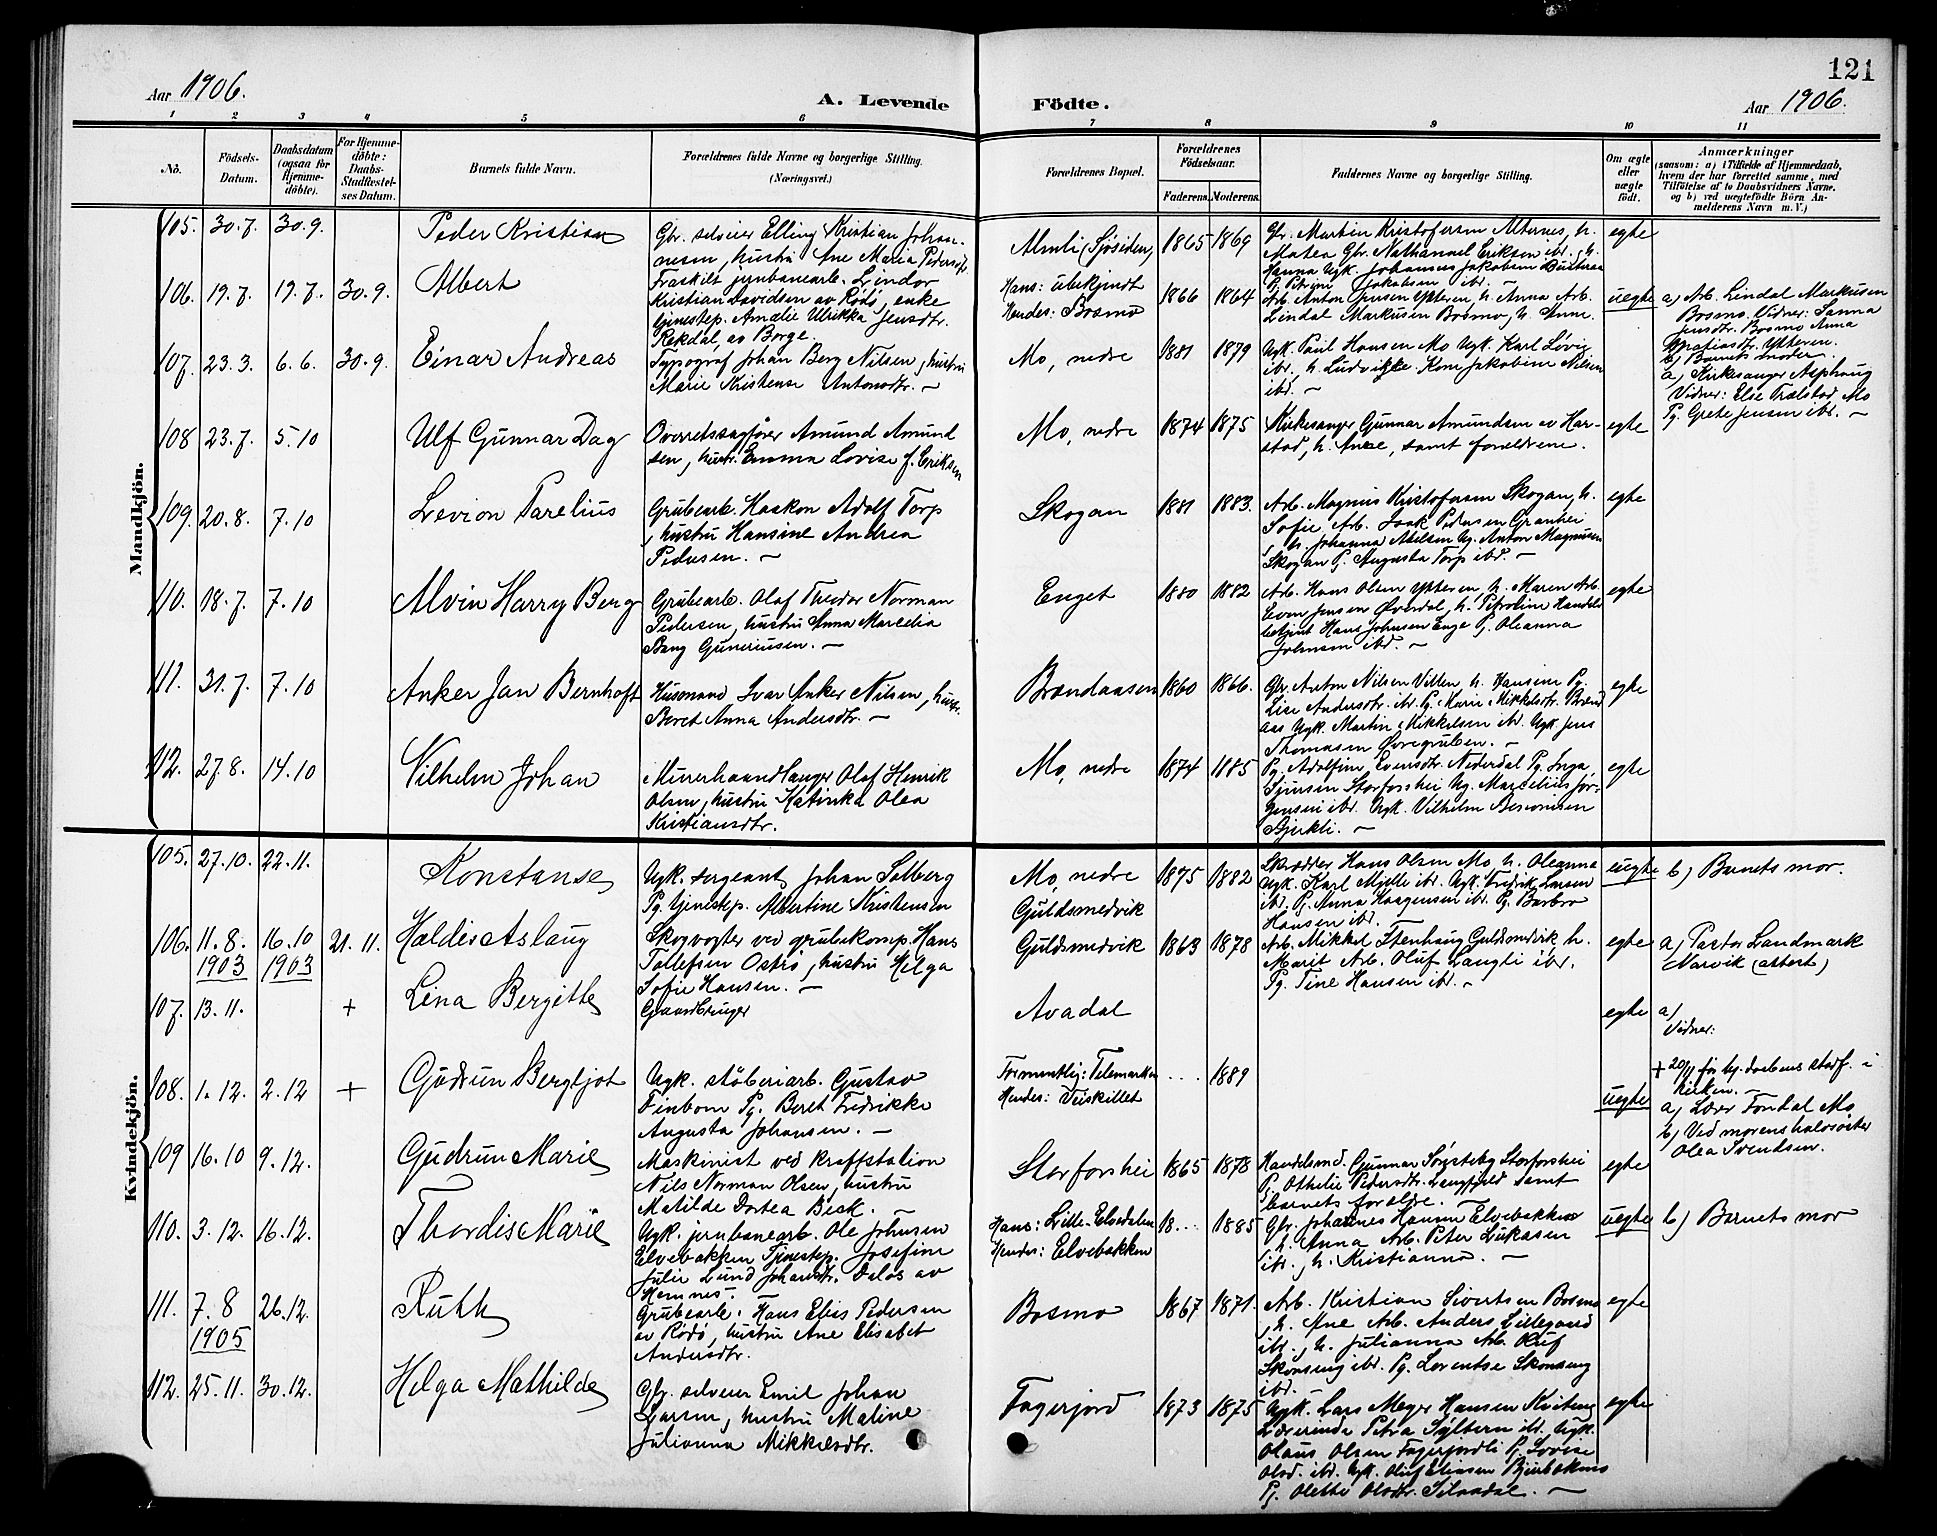 121
Aar 1906.
A. Levende Födte.
Aar 1906.
1 2 3 4 5 6 7 8 9 10 11
No.
Födsels-Datum.
Daabsdatum (ogsaa for Hjemme-döbte).
For Hjemme-döbte: Daabs-Stadfestel-ses Datum.
Barnets fulde Navn.
Forældrenes fulde Navne og borgerlige Stilling.
(Næringsvei.)
Forældrenes Bopæl.
Forældrenes Födselsaar.
Faderens. Moderens.
Faddernes Navne og borgerlige Stilling.
Om ægte eller uægte födt.
Anmærkninger
(saasom: a) i Tilfælde af Hjemmedaab, hvem der har forrettet samme, med Tilföielse af to Daabsvidners Navne. og b) ved uægtefödte Börn An-melderens Navn m. V.)
Mandkjön.
105. 30.7. 30.9. Peder Kristian
Gbr. selveier Elling Kristian Johan-
nesen, hustru Ane Maria Pedersdt.
Almli (Sjösiden) 1865 1869
Gbr. Martin Kristofersen Alternes, h.
Matea Gbr. Nathanael Eriksen ibr., h.
Hanna Ugk. Johannes Jakobsen
Jakobsen ibr.
egte
106. 19.7. 19.7. 30.9. Albert
Fraskilt jernbanearb. Lindor
Kristian Davidsen av Rödö, enke
tjenestep. Amalie Ulrikka Jensdtr.
av Borge.
Hans: ubekjendt
Hendes: Bosmo 1866 1864
Arb. Anton Jensen Ytteren, h. Anna Arb.
Lindal Markusen Bosmo, h. Anne.
uegte
a) Arb. Lindal Markusen
Bosmo. Vidner: Sanna
Jensdtr. Bosmo Anna
Ytteren.
b) Barnets moder.
107. 23.3. 6.6. 30.9. Einar Andreas
Typograf Johan Berg Nilsen, hustru
Marie Kristense Antonsdtr. —
Mo, nedre 1881 1879
Ugk. Paul Hansen Mo Ugk. Karl
ibr., h. Ludvikke Kone Jakobine Nilsen
ibd. —
a) Kirkesanger Asphaug
Vidner: Else Mo
Pg. Grete Jensen ibr. —
108 23.7. 5.10 Ulf Gunnar Dag
Overretssagförer Amund Amund
sen, hustr. Emma Lovise f. Eriksen
Mo, nedre 1874 1875
Kirkesanger Gunnar Amundsen av Har-
stad, h. samt foreldrene.
egte
109. 20.8. 7.10 Levion Parelius
Grubearb. Haakon Adolf Torp
, hustru Hansine Andrea
Pedersen. —
Skogan 1881 1883.
Arb. Magnus Kristofersen Skogan, h.
Sofie Arb. Isak Pedersen Granhei
, h. Johanna Ug. Anton Magnusen
Skogan Pg. Augusta Torp ibd. —
egte
110. 18.7. 7.10 Alvin Harry Berg
Grubearb. Olaf Theodor Norman
Pedersen, hustru Anna Marcelia
Bang Guneriusen. —
Enget 1880 1882
Arb. Hans Olsen Ytteren, h. Maren Arb.
Even Jensen Överdal, h. Petroline Handels
betjent Hans Johnsen Enge Pg. Oleanna
Johnsen ibr. —
egte
111. 31.7. 7.10 Anker Jan Bernhoft
Husmand Ivar Anker Nilsen, hustr.
Beret Anna Andersdtr. —
Brendaasen 1860 1866.
Gbr. Anton Nilsen h. Hansine Pg.
Lise Andersdtr. ibr. Pg. Marie Mikkelsdtr.
aas Ugk. Martin Mikkelsen ibr. Ugk. Jens
Thomasen Övregruben. —
egte
112. 27.8. 14.10 Vilhelm Johan
Minerhaandlanger Olaf Henrik
Olsen, hustru Katinka Olea
Kristiansdtr.
Mo, nedre 1874 1885
Pg. Adolfine Evensdtr. Nederdal Pg. Inga
Storforshei Ug. Marcelius Jör-
gensen ibr. Ugk. Vilhelm
Bjerkli. —
egte
Kvindekjön.
105. 27.10. 22.11. Konstanse
Ugk. sergeant Johan Solberg
Pg. tjenestep. Albertine Kristensen
Mo, nedre
Guldsmedvik 1875 1882
Skrædder Hans Olsen Mo, h. Oleanna
Ugk. Karl ibr. Ugk. Fredrik Larsen
ibr. Pg. Anna Haagensen ibr. Pg. Barbro
Hansen ibr.
uegte b) Barnets mor.
106. 11.8. 1903 16.10 1903 21.11. Haldis Aslaug
Skogvogter ved grubekomp. Hans
Tollefsen Oströ, hustru Helga
Sofie Hansen. —
Guldsmedvik 1863 1878
Arb. Mikkel Stenhaug Guldsmedvik h.
Marit Arb. Oluf Langli ibr.
Pg. Tine Hansen ibr. —
egte a) Pastor Landmark
Narvik (attest)
107. 13.11. + Lina Bergitte
Gaardbruger
Avadal
egte a)
Vidner:
108. 1.12. 2.12 + Gudrun Bergljot
Ugk. stöberiarb. Gustav
Finbom Pg. Beret Fredrikke
Augusta Johansen. —
Formentlig: Telemarken
Hendes: Veiskillet .... 1889
uegte
+ 20/11 för daabens stadf. i
kirken. —
a) Lærer Fondal Mo
b) Ved morens halvsöster
Olea Svendsen.
109 16.10 9.12. Gudrun Marie
Maskinist ved kraftstation
Nils Norman Olsen, hustru
Matilde Dortea Beck. —
Storforshei 1865 1878
Handelsmd. Gunnar Storforshei
Pg. Othelie Pedersdtr. Langfjeld samt
barnets forældre. —
egte
110. 3.12. 16.12. Thordis Marie
Ugk. jernbanearb. Ole Johnsen
Elvebakken Tjenestep. Josefine
Julie Lund Johansdtr. Dalos av
Hemnes. —
Hans: Lille-Elvedalen
Hendes: Elvebakken 18... 1885
Gbr. Johannes Hansen Elvebakken
, h. Anna Arb. Peter Lukasen
ibr., h. Kristianna. —
uegte b) Barnets mor
111. 7.8 1905 26.12. Ruth
Grubearb. Hans Elias Pedersen
av Rödö, hustru Ane Elisabet
Andersdtr.
Bosmo 1867 1871.
Arb. Kristian Sivertsen Bosmo
, h. Ane Arb. Anders Lillegaard
ibr., h. Julianna Arb. Oluf
Skonseng ibr. Pg. Lorentse Skonseng
ibr.
egte
112. 25.11. 30.12. Helga Mathilde
Gbr. selveier Emil Johan
Larsen, hustru Maline
Julianna Mikkelsdtr.
Fagerjord 1873 1875
Ugk. Lars Meyer Hansen
Lærerinde Petra Sylteren ibr. Ugk.
Olaus Olsen Fagerjordli Pg. Lovise
Olsd. ibr. Ugk. Oluf Eliasen
Pg. Olette Olsdtr. —
egte